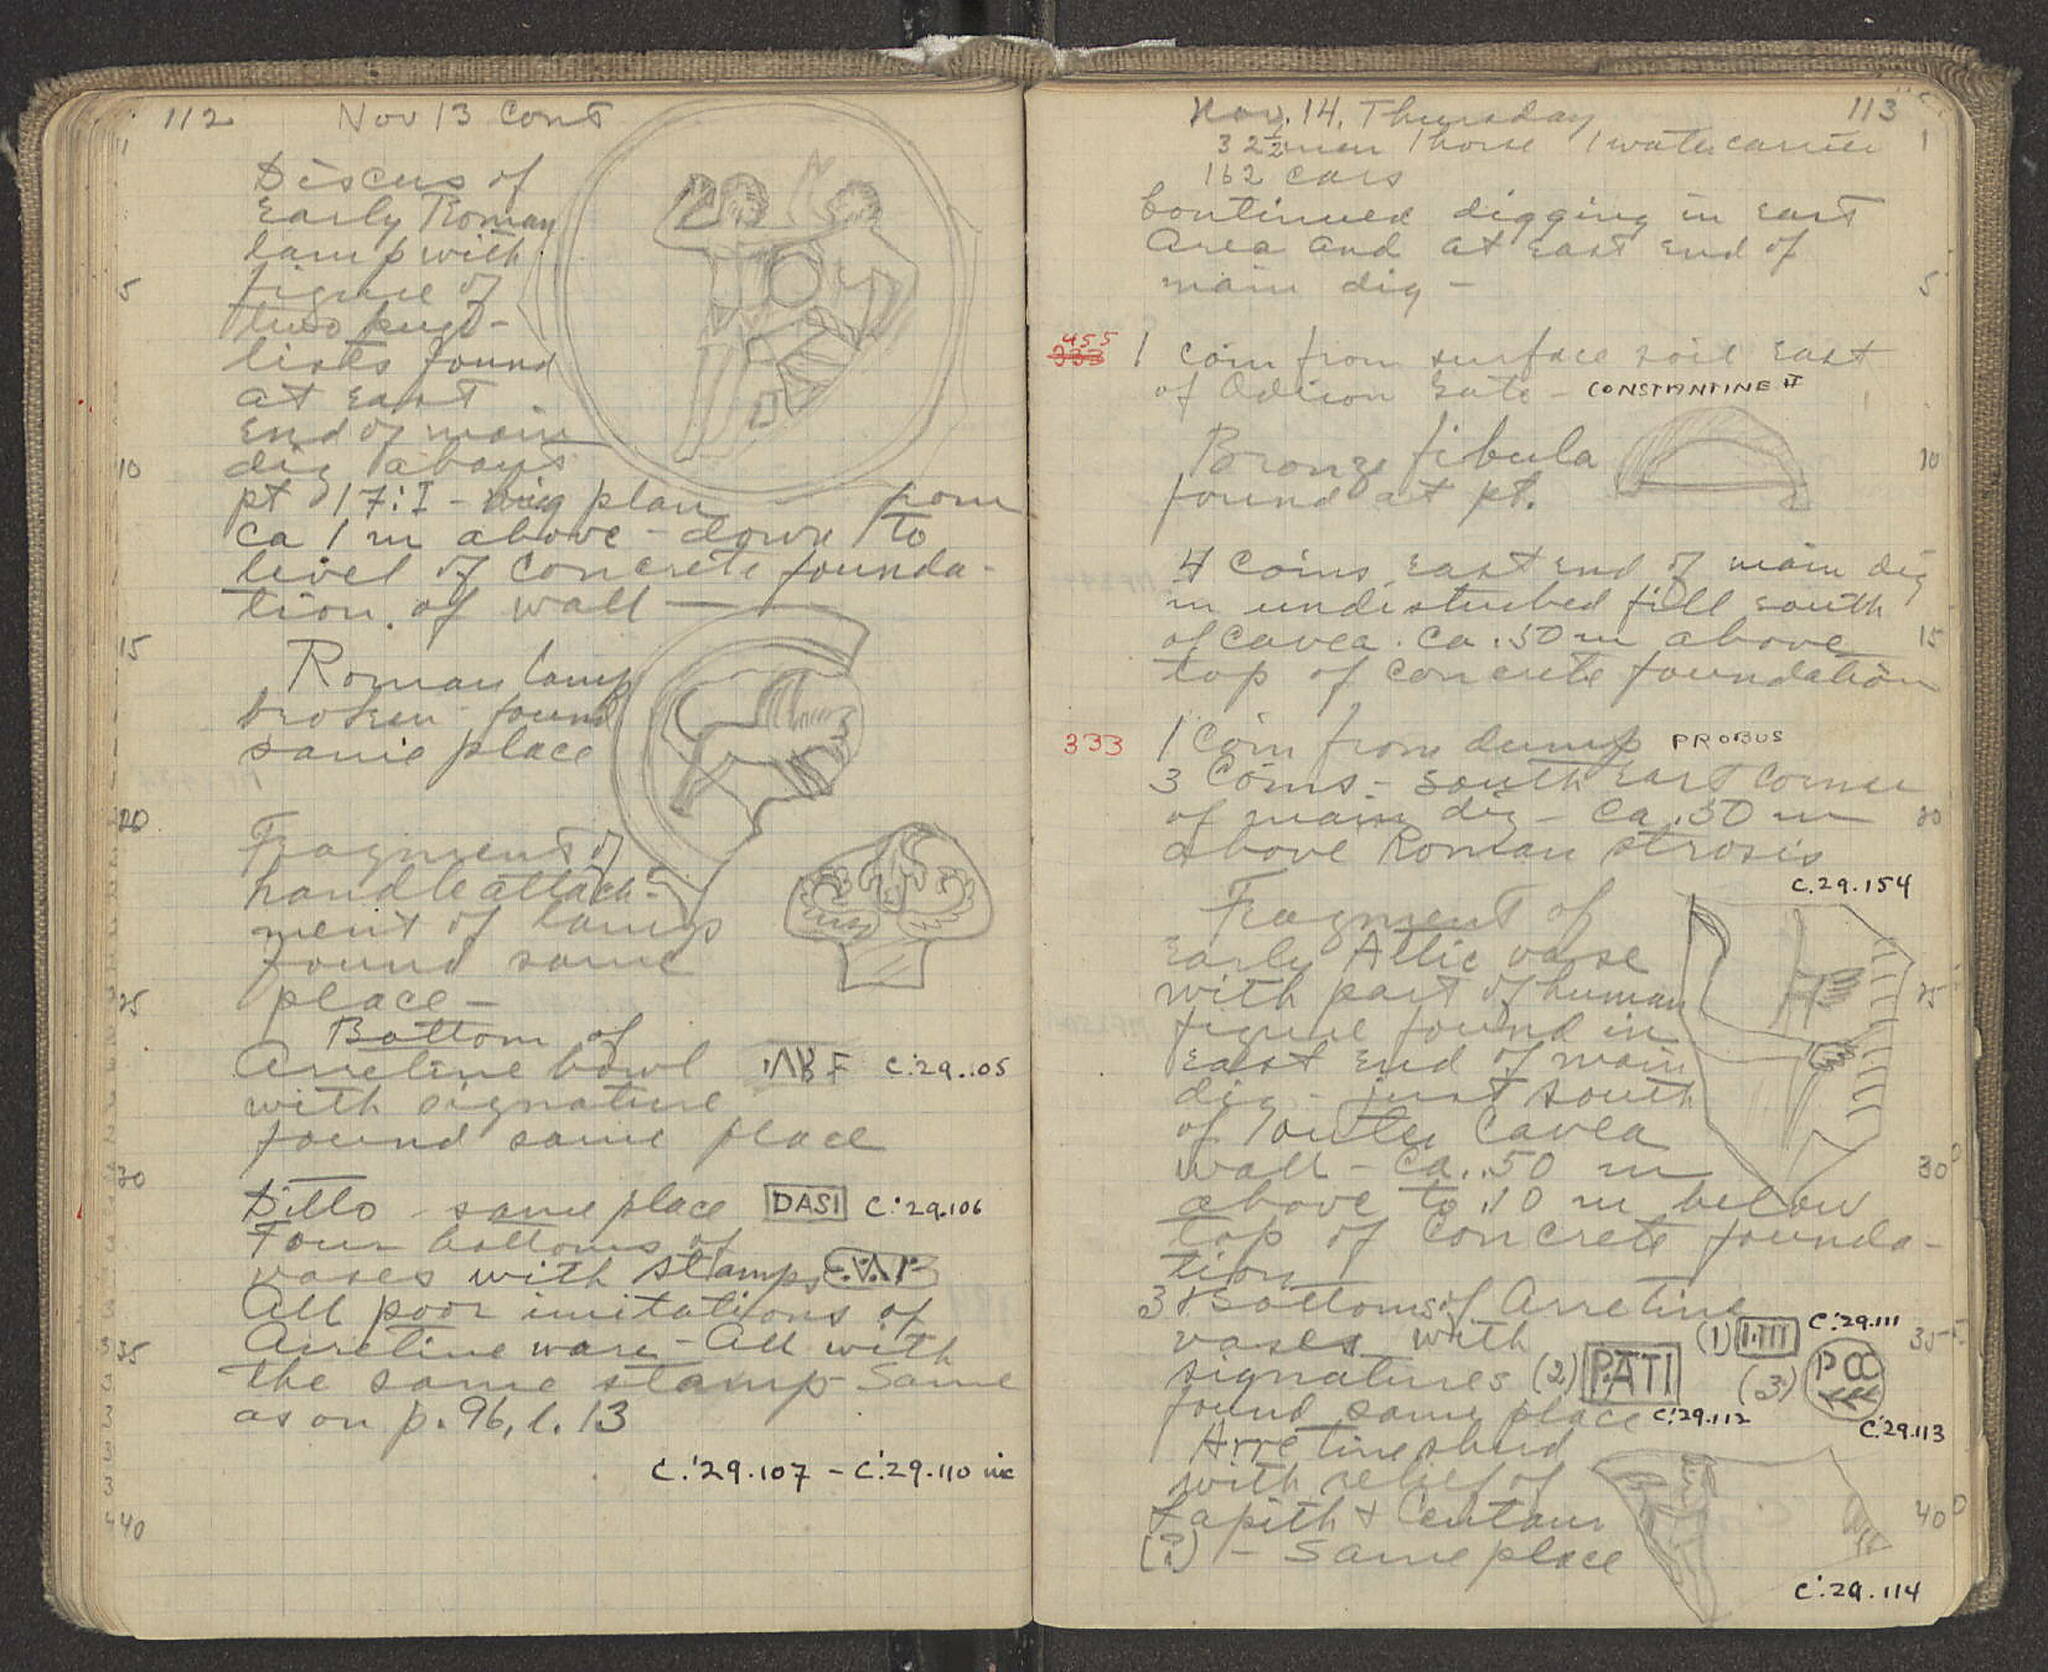 112 Nov 13 Cont
Discus of
Early Roman
lamp with
figure of
two pugi-
lists found
at east
End of main
dig above
pt 17:I - dig plan from
ca 1 m above - down to
level of concrete founda-
tion of wall
Roman lamp
broken found
same place
Fragment of
handle attach-
ment of lamp
found same
place -
Bottom of
Arretine bowl C.'29.105
with signature
found same place
Ditto - same place DASI C.'29.106
Four bottoms of
vases with stamps
All poor imitations of
Arretine ware - All with
the same stamp Same
as on p. 96, l. 13
C.'29.107 - C.'29.110 inc
5
10
15
20
25
30
35
40
Nov. 14, Thursday 113
32 1/2 men 1 horse 1 water carrier
162 cars
Continued digging in east
Area and at east end of
main dig -
455
333 1 coin from surface soil east
of Odeion Gate - CONSTANTINE II
Bronze fibula
found at pt.
4 Coins east end of main dig
in undisturbed fill south
of cavea. ca .50 m above
top of concrete foundation
333 1 Coin from dump PROBUS
3 Coins - south east corner
of main dig - ca .50 m
above Roman strosis
C.29.154
Fragment of
Early Attic vase
with part of human
figure found in
east end of main
dig - just south
of outer Cavea
wall - ca. .50 m
above to .10 m below
top of concrete founda-
tion
3 Bottoms of Arretine
vases with (1) I.III C.'29.111
signatures (2) PATI (3) PCC
found same place C.'29.112 C.'29.113
Arretine sherd
with relief of
Lapith + Centaur
(?) - Same place
C.'29.114
1
5
10
15
20
25
30
35
40